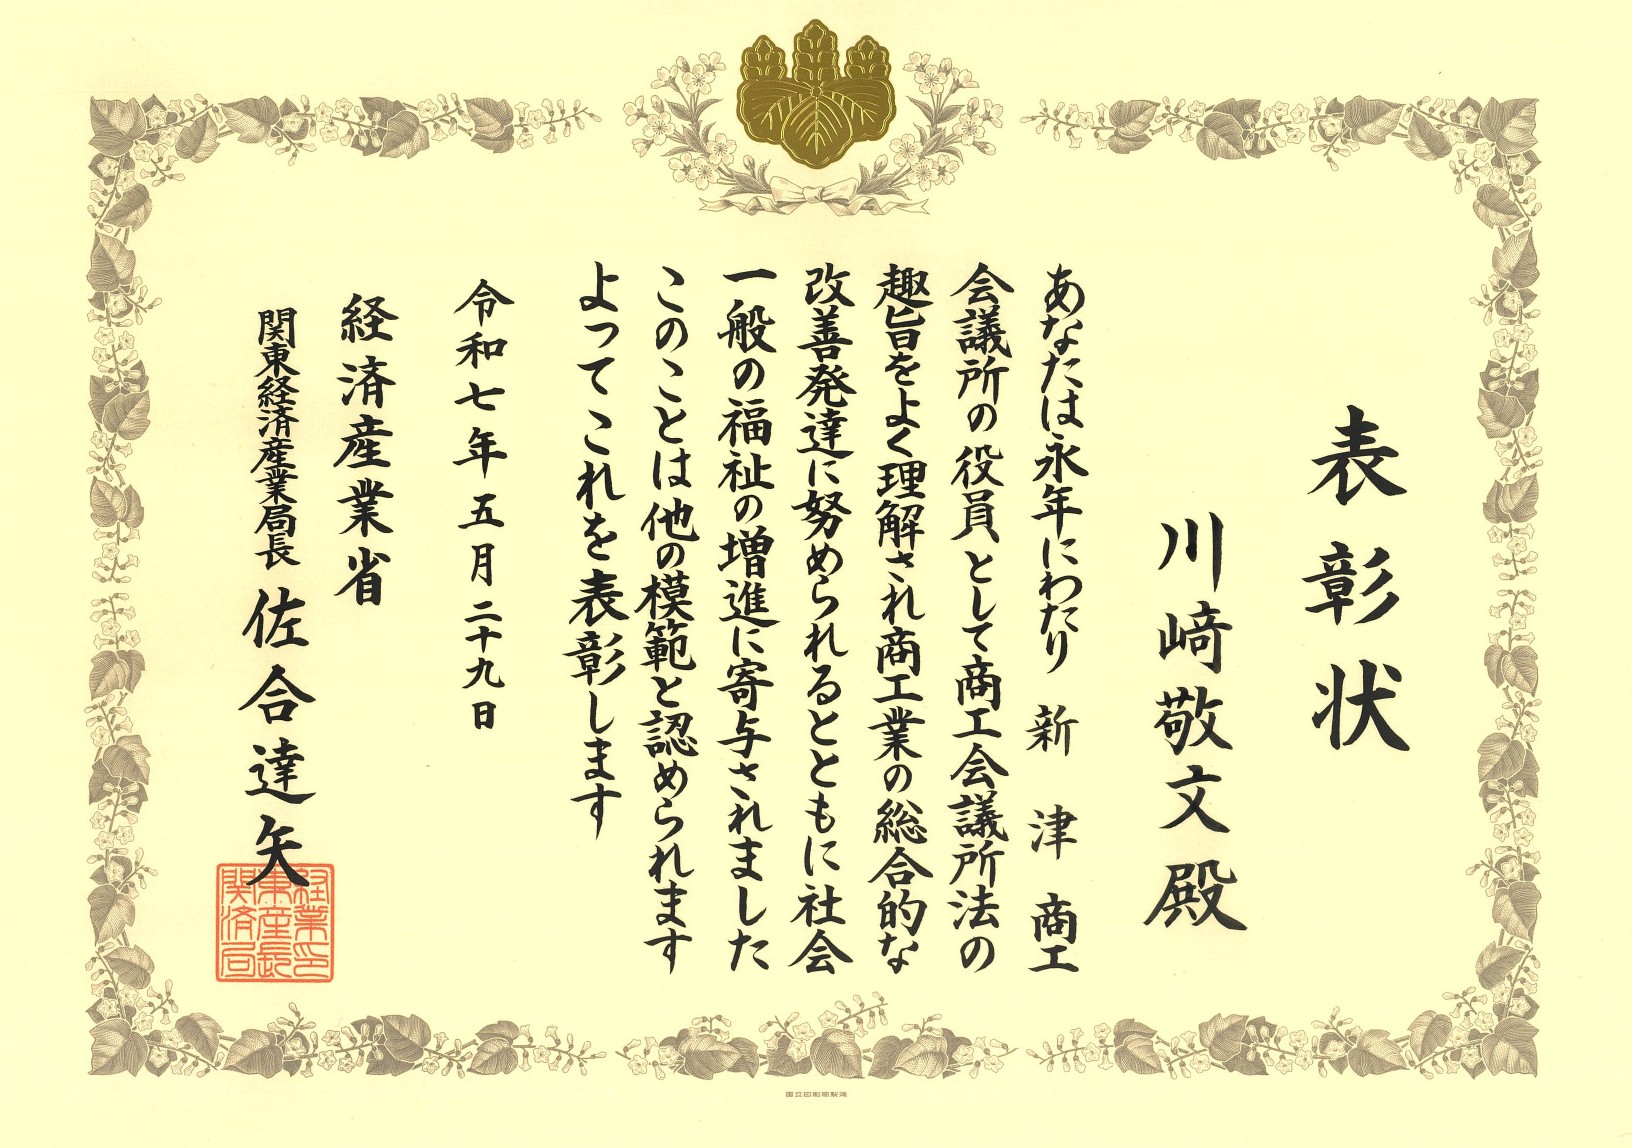 表彰状
川﨑敬文殿
あなたは永年にわたり新津商工
会議所の役員として商工会議所法の
趣旨をよく理解され商工業の総合的な
改善発達に努められるとともに社会
一般の福祉の増進に寄与されました
このことは他の模範と認められます
よってこれを表彰します
令和七年五月二十九日
経済産業省
関東経済産業局長 佐合達矢
経業印
東産長
関済局
国立印刷局製造